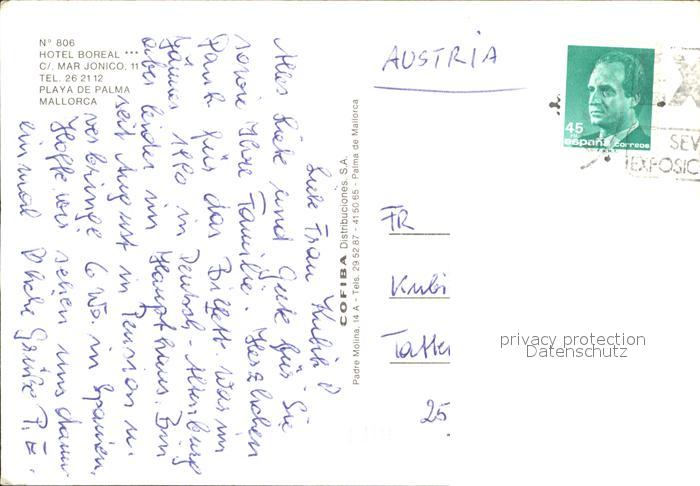 Nº 806
HOTEL BOREAL ***
C/. MAR JONICO, 11
TEL. 26 21 12
PLAYA DE PALMA
MALLORCA
Liebe Frau Kubik!
Alles Liebe und Gute für Sie
sowie Ihre Familie. Herzlichen
Dank für das Billett. War im
Jänner 1990 in Deutsch-Altenburg
aber leider im Haupthaus. Bin
seit August in Pension u.
verbringe 6 Wo. in Spanien.
Hoffe wir sehen uns dann
einmal. Liebe Grüße
COFIBA Distribuciones, S.A.
Padre Molina, 14 A - Tels. 29 52 87 - 41 50 65 - Palma de Mallorca
AUSTRIA
45
españa correos
SEV
EXPOSIC
FR
Kubi
Tatte
25
privacy protection
Datenschutz